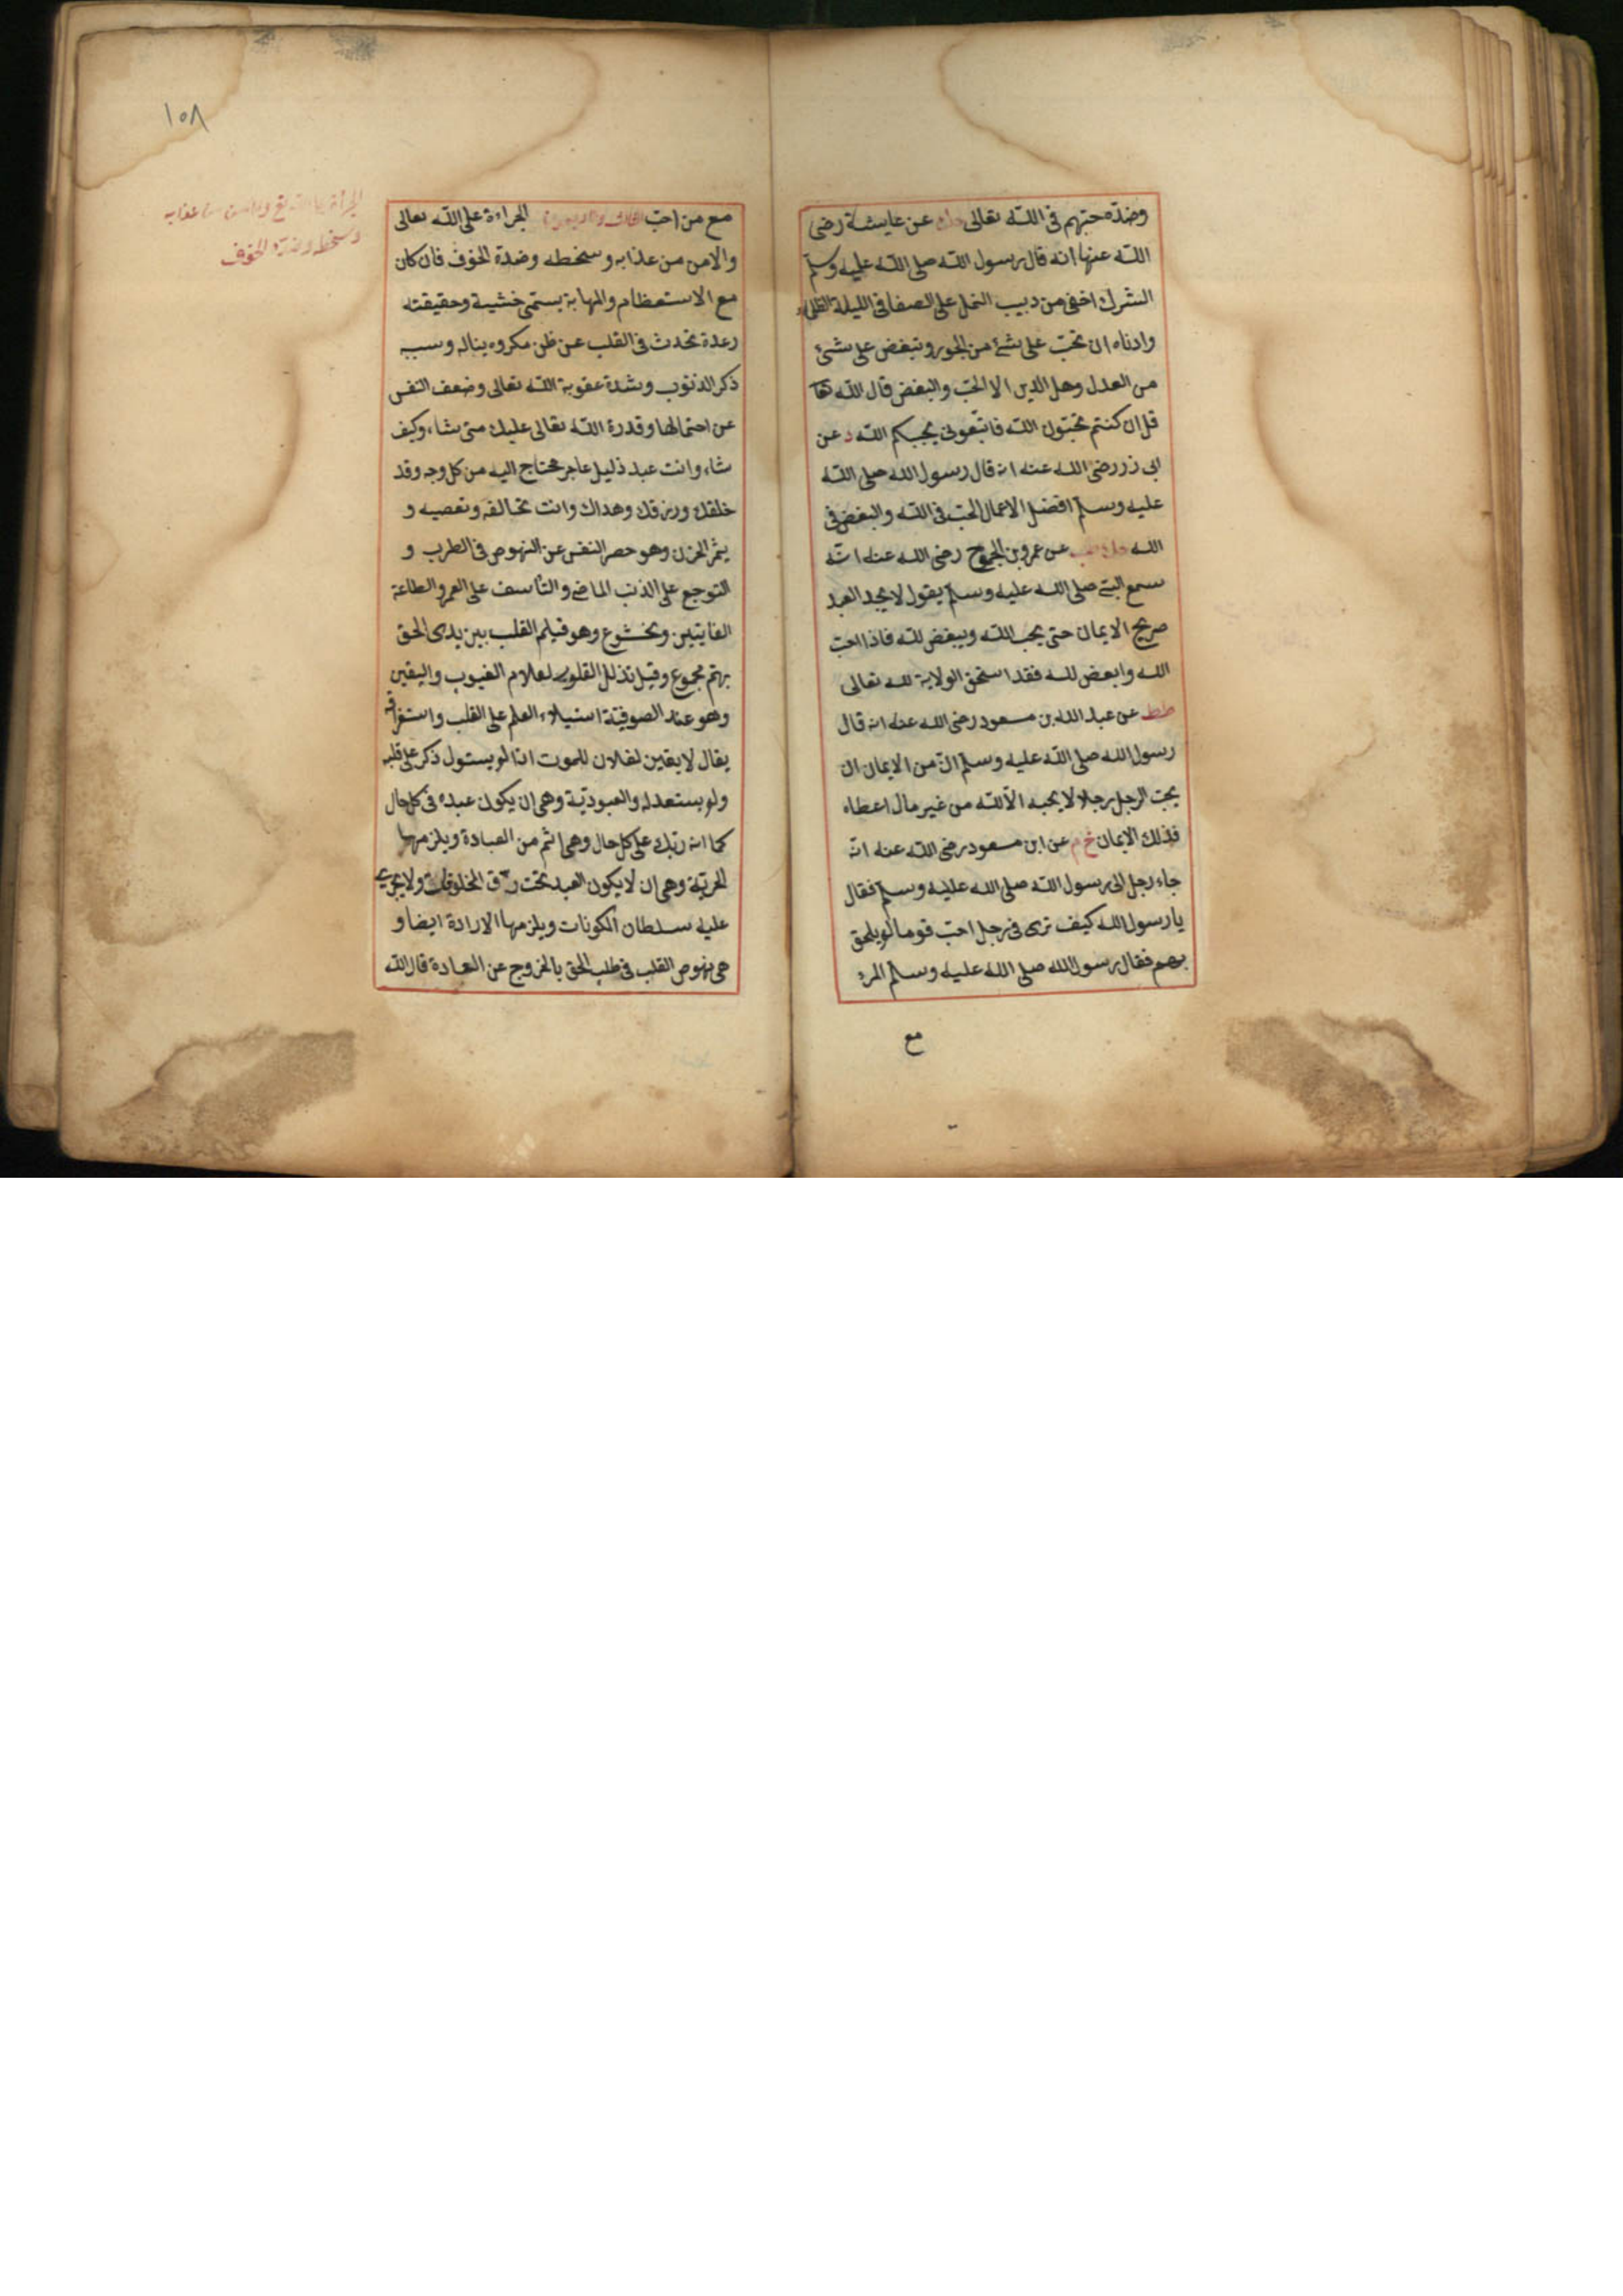 وضدّه حبّهم فى اللّه تعالى حك عن عايشة رضى
اللّه عنها انه قال رسول اللّه صلى اللّه عليه وسلم
الشرك اخفى من دبيب النمل على الصفا فى الليلة الظلماء
وادناه ان تحبّ على شئ من الجور وتبغض على شئ
من العدل وهل الدين الا الحبّ والبغض قال اللّه تعا
قل ان كنتم تحبّون اللّه فاتّبعونى يحببكم اللّه د عن
ابى ذر رضى اللّه عنه انه قال رسول اللّه صلى اللّه
عليه وسلم افضل الاعمال الحبّ فى اللّه والبغض فى
اللّه عن عمرو بن الجموح رضى اللّه عنه انّه
سمع النبى صلى اللّه عليه وسلم يقول لا يجد العبد
صريح الايمان حتى يحب للّه ويبغض للّه فاذا احبّ
للّه وابغض للّه فقد استحق الولاية للّه تعالى
طط عن عبد اللّه بن مسعود رضى اللّه عنه انه قال
رسول اللّه صلى اللّه عليه وسلم انّ من الايمان ان
يحبّ الرجل رجلا لا يحبه الّا للّه من غير مال اعطاه
فذلك الايمان خ م عن ابن مسعود رضى اللّه عنه انّه
جاء رجل الى رسول اللّه صلى اللّه عليه وسلم فقال
يا رسول اللّه كيف ترى فى رجل احبّ قوما لو يلحق
بهم فقال رسول اللّه صلى اللّه عليه وسلم المرء
مع
١٥٨
الجرأة على اللّه تع والامن من عذابه
وسخطه وضدّه الخوف
مع من احبّ الجراءة على اللّه تعالى
والامن من عذابه وسخطه وضدة الخوف فان كان
مع الاستعظام والمهابة يسمّى خشية وحقيقته
رعدة تحدث فى القلب عن ظن مكروه يناله وسببه
ذكر الذنوب وشدة عقوبة اللّه تعالى وضعف النفس
عن احتمالها وقدرة اللّه تعالى عليك متى شاء وكيف
شاء وانت عبد ذليل عاجز محتاج اليه من كل وجه وقد
خلقك ورزقك وهداك وانت تخالفه وتعصيه و
يثمر الحزن وهو حصر النفس عن النهوض فى الطرب و
التوجع على الذنب الماضى والتأسف على العمر والطاعة
الفايتين وبخشوع وهو قيام القلب بين يدى الحق
بهّم مجموع وقيل تذلل القلوب لعلام الغيوب واليقين
وهو عند الصوفيّة استيلاء العلم على القلب واستغراقه
يقال لا يقين لفلان للموت اذا لو يستول ذكر على قلبه
ولو يستعد له والعبوديّة وهى ان يكون عبده فى كل حال
كما انه ربّك على كل حال وهى اتم من العبادة ويلزمها
الحريّة وهى ان لا يكون العبد تحت رق المخلوقات ولا يجرى
عليه سلطان المكونات ويلزمها الارادة ايضا و
هى نهوض القلب فى طلب الحق بالخروج عن العادة قال اللّه